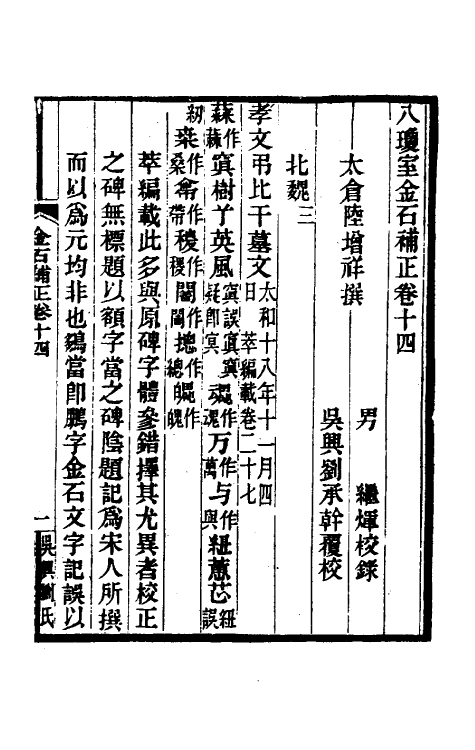 八瓊室金石補正卷十四
太倉陸增祥撰
男　繼煇校錄
吳興劉承幹覆校
北魏三
孝文弔比干墓文太和十八年十一月四日　萃編載卷二十七
蘇作蘓寘樹丫英風寘誤寘寘疑卽冥䰟作魂万作萬与作與紐蕙芯紐誤
紉桒作桑㡀作帶稷作稷闇作閽摠作總䰠作魄
萃編載此多與原碑字體參錯擇其尤異者校正
之碑無標題以額字當之碑陰題記爲宋人所撰
而以爲元均非也鵕當卽鵬字金石文字記誤以
金石補正卷十四
一
吳興劉氏